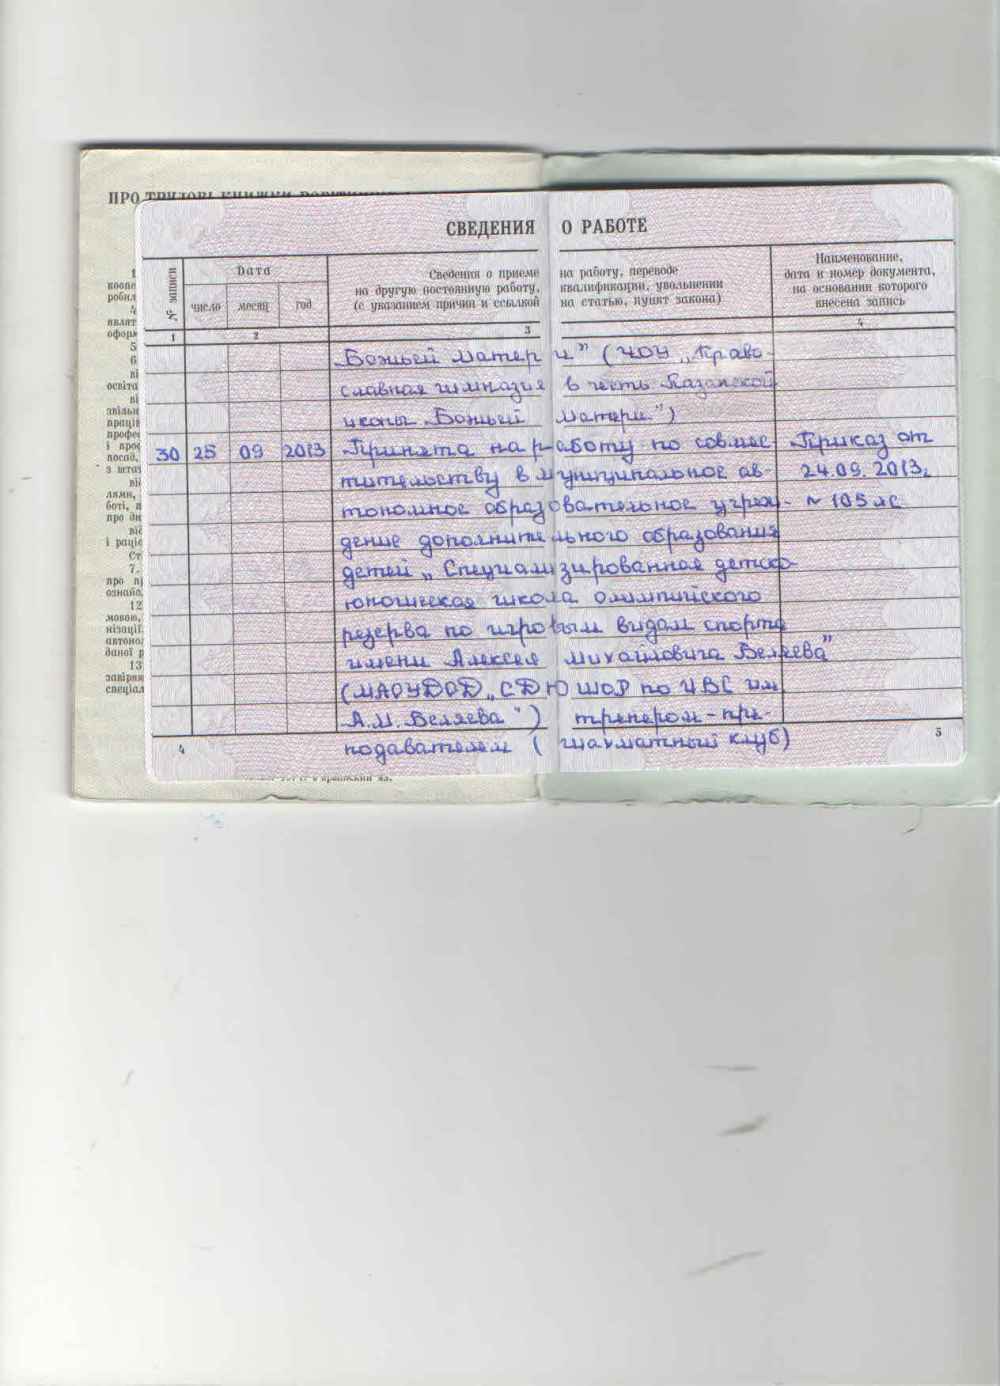 ПРО ТРУДОВІ КНИЖКИ
СВЕДЕНИЯ О РАБОТЕ
№ записи
Дата
число месяц год
Сведения о приеме на работу, переводе
на другую постоянную работу, квалификации, увольнении
(с указанием причин и ссылкой на статью, пункт закона)
Наименование,
дата и номер документа,
на основании которого
внесена запись
1 2 3 4
Божьей Матери" (ЧОУ „Право-
славная гимназия в честь Казанской
иконы Божьей Матери")
30 25 09 2013 Принята на работу по совмес- Приказ от
тительству в муниципальное ав- 24.09.2013г
тономное образовательное учреж- № 105 лс
дение дополнительного образования
детей „Специализированная детско-
юношеская школа олимпийского
резерва по игровым видам спорта
имени Алексея Михайловича Беляева"
(МАОУДОД „СДЮШОР по ИВС им
А.М. Беляева") тренером-пре-
подавателем (шахматный клуб)
4 5
1
коопе
робил
4
являт
оформ
5
6
ві
освіта
ві
звільн
праців
профес
і прос
посад,
з штат
ві
лями,
боті, п
про ди
віс
і раціє
Ст
7.
про п
ознайо
12
мовою,
нізації
автоно
даної р
13
завіряє
спеціал